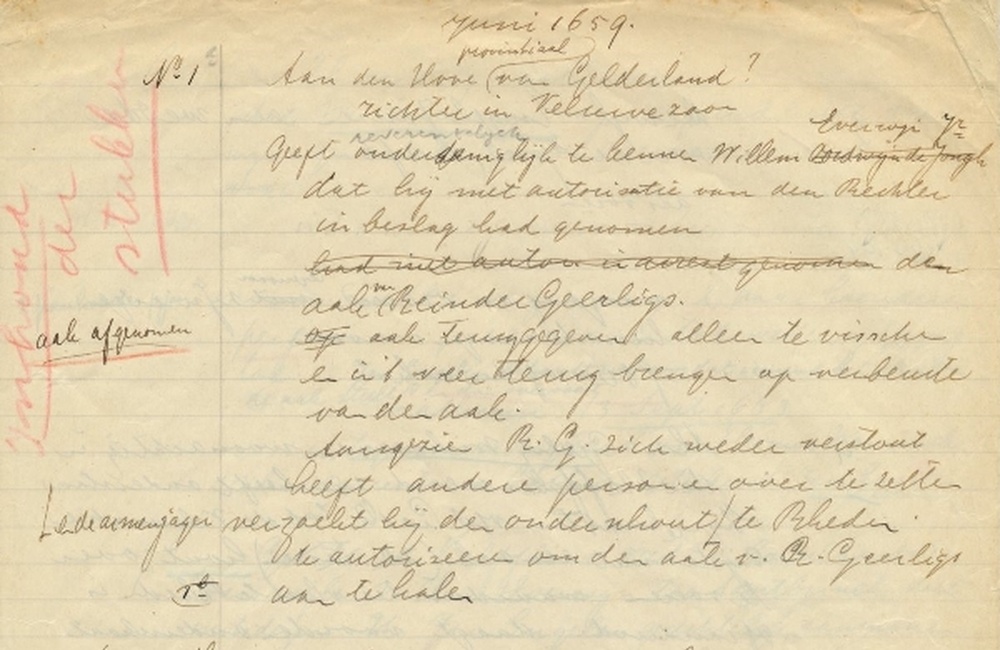 Juni 1659.
provinciaal
No 1 Aan den Hove van Gelderland?
richter in Veluwezoom
Everwijn Jr
reverentelyck
Geeft onderdaniglijk te kennen Willem
dat hij met autorisatie van den Rechter
in beslag had genomen
had met autor. in arrest genomen den
aak van Reinder Geerligs.
op aak teruggegeven alleen te visschen
aak afgenomen
en uit veer terug brengen op verbeurte
van de aak.
Aangezien R. G. zich weder verstout
heeft andere personen over te zetten
verzoekt hij den onderschout / te Rheden
[ede armenjager
te autoriseeren om de aak v. R. Geerligs
aan te halen
Inhoud der stukken